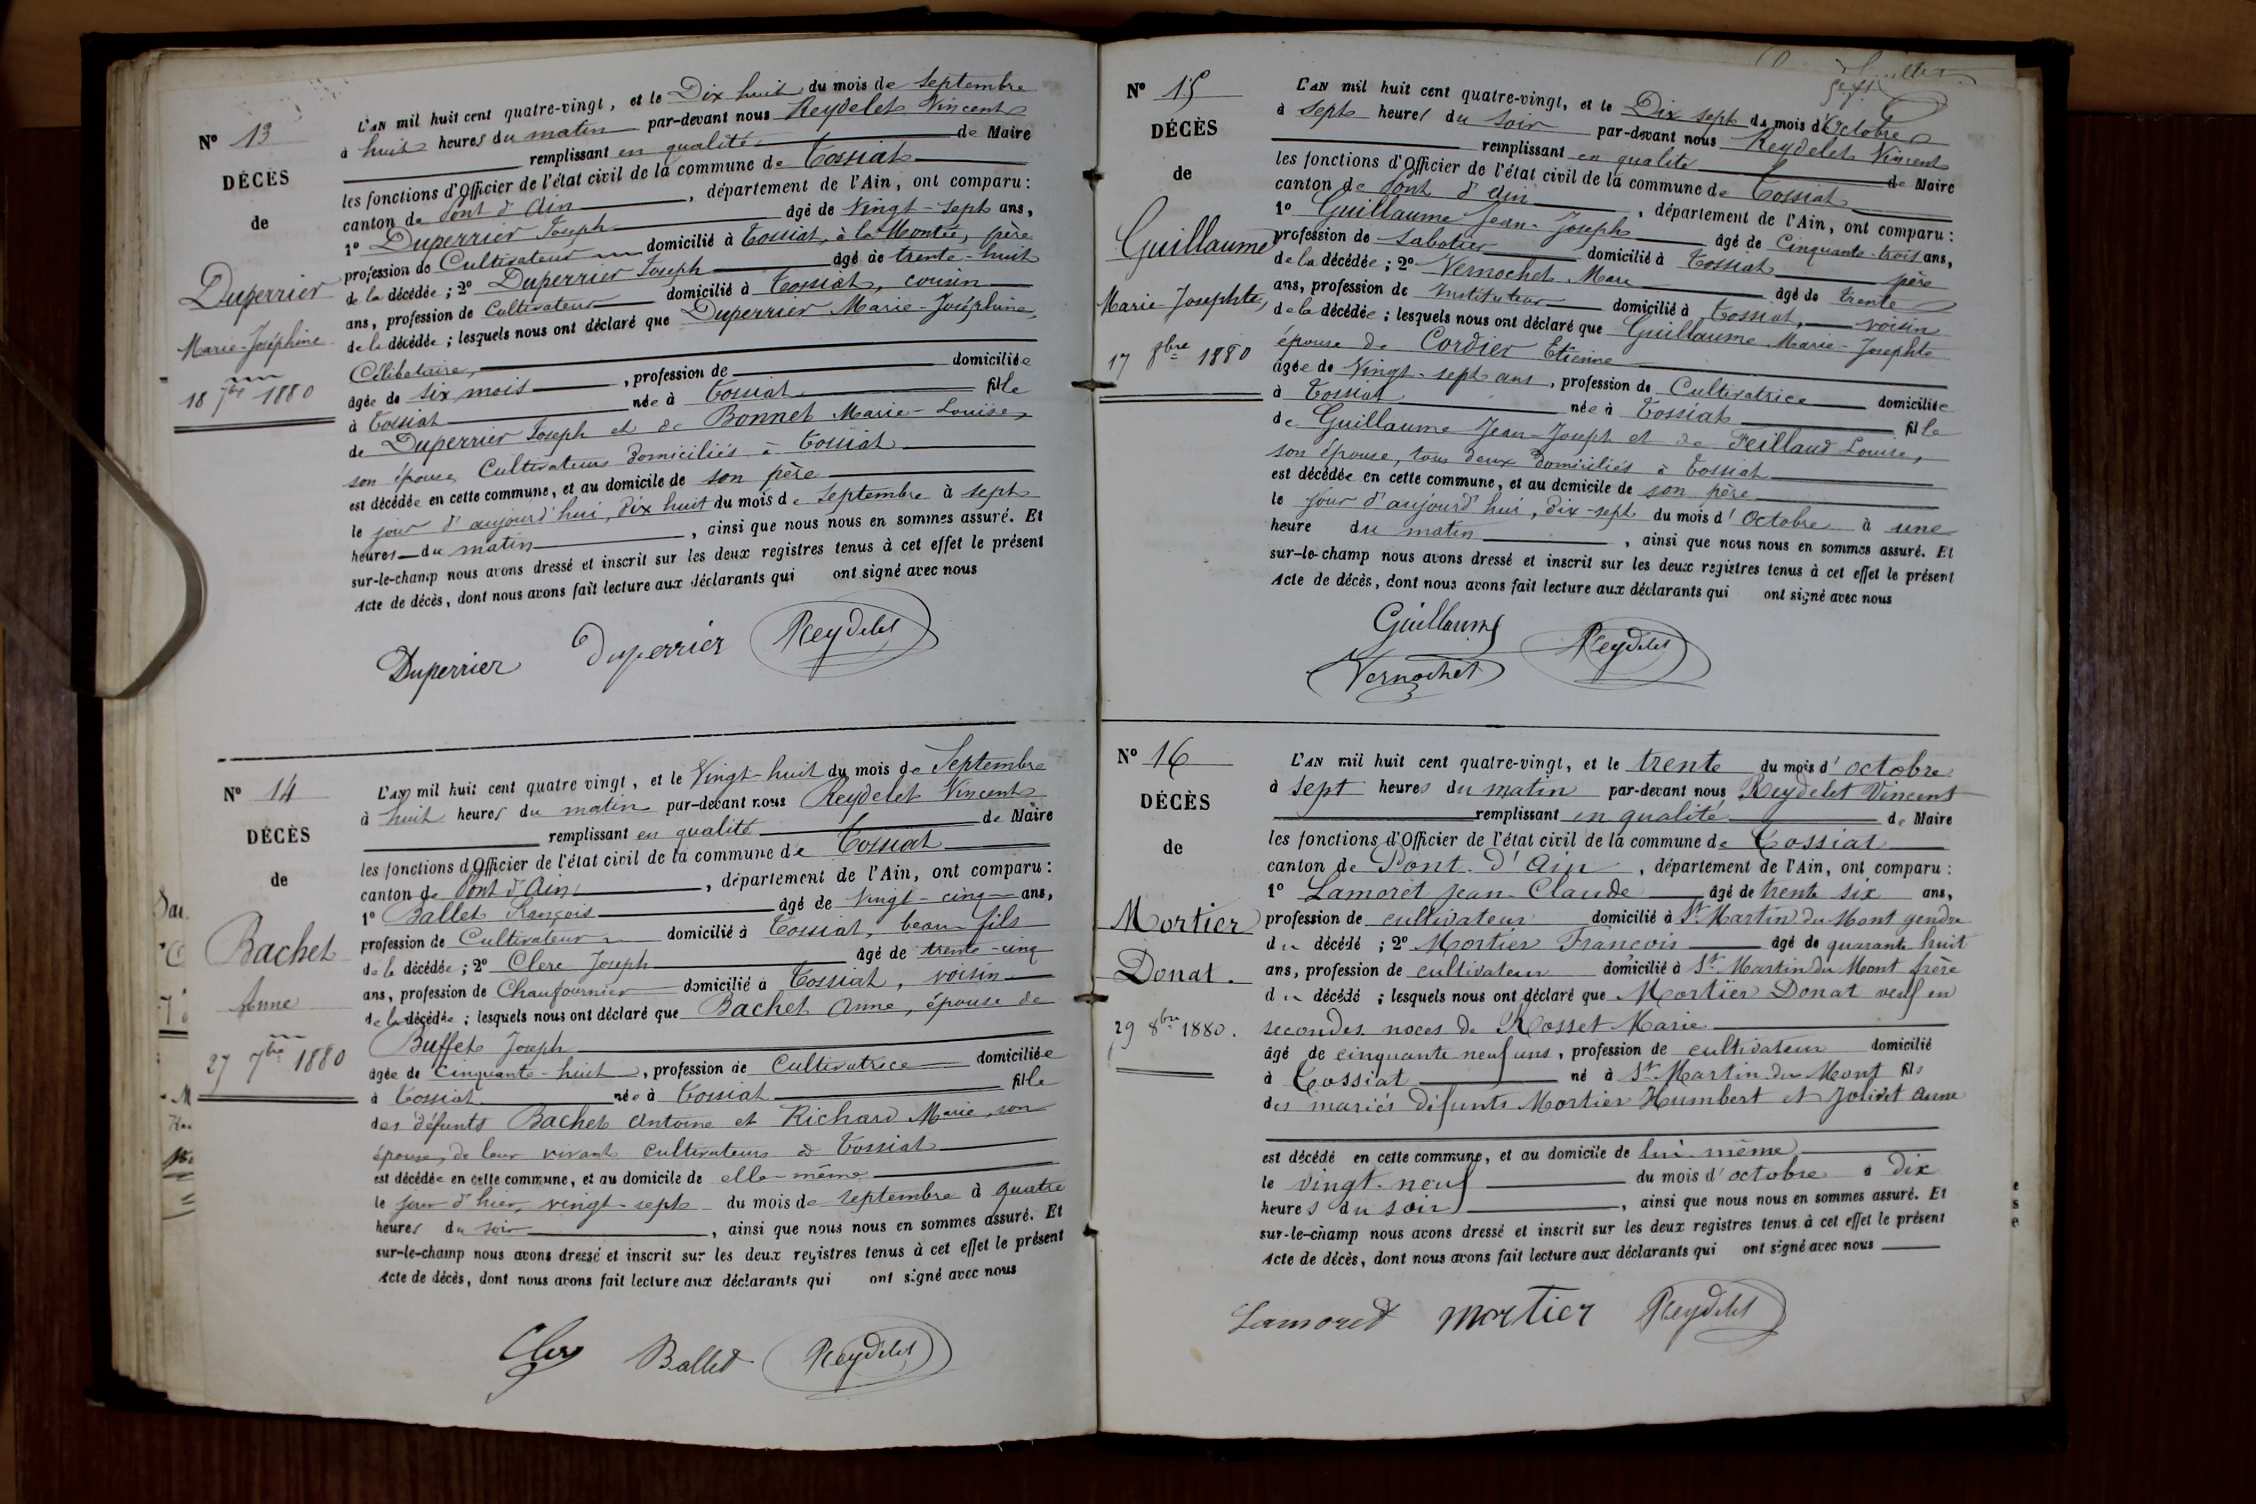 N° 13
DÉCÈS
de
Duperrier
Marie-Joséphine
18 7bre 1880
L'AN mil huit cent quatre-vingt, et le Dix huit du mois de septembre
à huit heures du matin par-devant nous Reydelet Vincent
remplissant en qualité de Maire
les fonctions d'Officier de l'état civil de la commune de Tossiat
canton de Pont d'Ain, département de l'Ain, ont comparu :
1° Duperrier Joseph âgé de Vingt-sept ans,
profession de Cultivateur domicilié à Tossiat, à la Montée, père
de la décédée ; 2° Duperrier Joseph âgé de trente-huit
ans, profession de Cultivateur domicilié à Tossiat, cousin
de la décédée ; lesquels nous ont déclaré que Duperrier Marie-Joséphine,
Célibataire,
âgée de six mois, profession de domiciliée
à Tossiat née à Tossiat fille
de Duperrier Joseph et de Bonnet Marie-Louise,
son épouse, Cultivateurs domiciliés à Tossiat
est décédée en cette commune, et au domicile de son père
le jour d'aujourd'hui, dix huit du mois de septembre à sept
heures du matin, ainsi que nous nous en sommes assuré. Et
sur-le-champ nous avons dressé et inscrit sur les deux registres tenus à cet effet le présent
Acte de décès, dont nous avons fait lecture aux déclarants qui ont signé avec nous
Duperrier Duperrier Reydelet
N° 14
DÉCÈS
de
Bachet
Anne
27 7bre 1880
L'AN mil huit cent quatre vingt, et le Vingt-huit du mois de Septembre
à huit heures du matin par-devant nous Reydelet Vincent
remplissant en qualité de Maire
les fonctions d'Officier de l'état civil de la commune de Tossiat
canton de Pont d'Ain, département de l'Ain, ont comparu :
1° Ballet François âgé de vingt-cinq ans,
profession de Cultivateur domicilié à Tossiat, beau fils
de la décédée ; 2° Clerc Joseph âgé de trente-cinq
ans, profession de Chaufournier domicilié à Tossiat, voisin
de la décédée ; lesquels nous ont déclaré que Bachet Anne, épouse de
Buffet Joseph
âgée de cinquante-huit, profession de Cultivatrice domiciliée
à Tossiat née à Tossiat fille
des défunts Bachet Antoine et Richard Marie, son
épouse, de leur vivant cultivateurs à Tossiat
est décédée en cette commune, et au domicile de elle-même
le jour d'hier, vingt-sept du mois de septembre à quatre
heures du soir, ainsi que nous nous en sommes assuré. Et
sur-le-champ nous avons dressé et inscrit sur les deux registres tenus à cet effet le présent
Acte de décès, dont nous avons fait lecture aux déclarants qui ont signé avec nous
Clerc Ballet Reydelet
N° 15
DÉCÈS
de
Guillaume
Marie-Josephte,
17 8bre 1880
L'AN mil huit cent quatre-vingt, et le Dix sept du mois d'Octobre
à sept heures du soir par-devant nous Reydelet Vincent
remplissant en qualité de Maire
les fonctions d'Officier de l'état civil de la commune de Tossiat
canton de Pont d'Ain, département de l'Ain, ont comparu :
1° Guillaume Jean-Joseph âgé de Cinquante-trois ans,
profession de Sabotier domicilié à Tossiat père
de la décédée ; 2° Vernochet Marc âgé de trente
ans, profession de Instituteur domicilié à Tossiat, voisin
de la décédée ; lesquels nous ont déclaré que Guillaume Marie-Josephte
épouse de Cordier Etienne
âgée de Vingt-sept ans, profession de Cultivatrice domiciliée
à Tossiat née à Tossiat fille
de Guillaume Jean-Joseph et de Feillaud Louise,
son épouse, tous deux domiciliés à Tossiat
est décédée en cette commune, et au domicile de son père
le jour d'aujourd'hui, dix-sept du mois d'Octobre à une
heure du matin, ainsi que nous nous en sommes assuré. Et
sur-le-champ nous avons dressé et inscrit sur les deux registres tenus à cet effet le présent
Acte de décès, dont nous avons fait lecture aux déclarants qui ont signé avec nous
Guillaume
Vernochet Reydelet
N° 16
DÉCÈS
de
Mortier
Donat.
29 8bre 1880.
L'AN mil huit cent quatre-vingt, et le trente du mois d'octobre
à sept heures du matin par-devant nous Reydelet Vincent
remplissant en qualité de Maire
les fonctions d'Officier de l'état civil de la commune de Tossiat
canton de Pont d'Ain, département de l'Ain, ont comparu :
1° Lamoret Jean-Claude âgé de trente six ans,
profession de cultivateur domicilié à St Martin du Mont gendre
du décédé ; 2° Mortier François âgé de quarante huit
ans, profession de cultivateur domicilié à St Martin du Mont frère
du décédé ; lesquels nous ont déclaré que Mortier Donat veuf en
secondes noces de Rosset Marie
âgé de cinquante neuf ans, profession de cultivateur domicilié
à Tossiat né à St Martin du Mont fils
des mariés défunts Mortier Humbert et Jolivet Anne
est décédé en cette commune, et au domicile de lui même
le vingt-neuf du mois d'octobre à dix
heures du soir, ainsi que nous nous en sommes assuré. Et
sur-le-champ nous avons dressé et inscrit sur les deux registres tenus à cet effet le présent
Acte de décès, dont nous avons fait lecture aux déclarants qui ont signé avec nous
Lamoret Mortier Reydelet